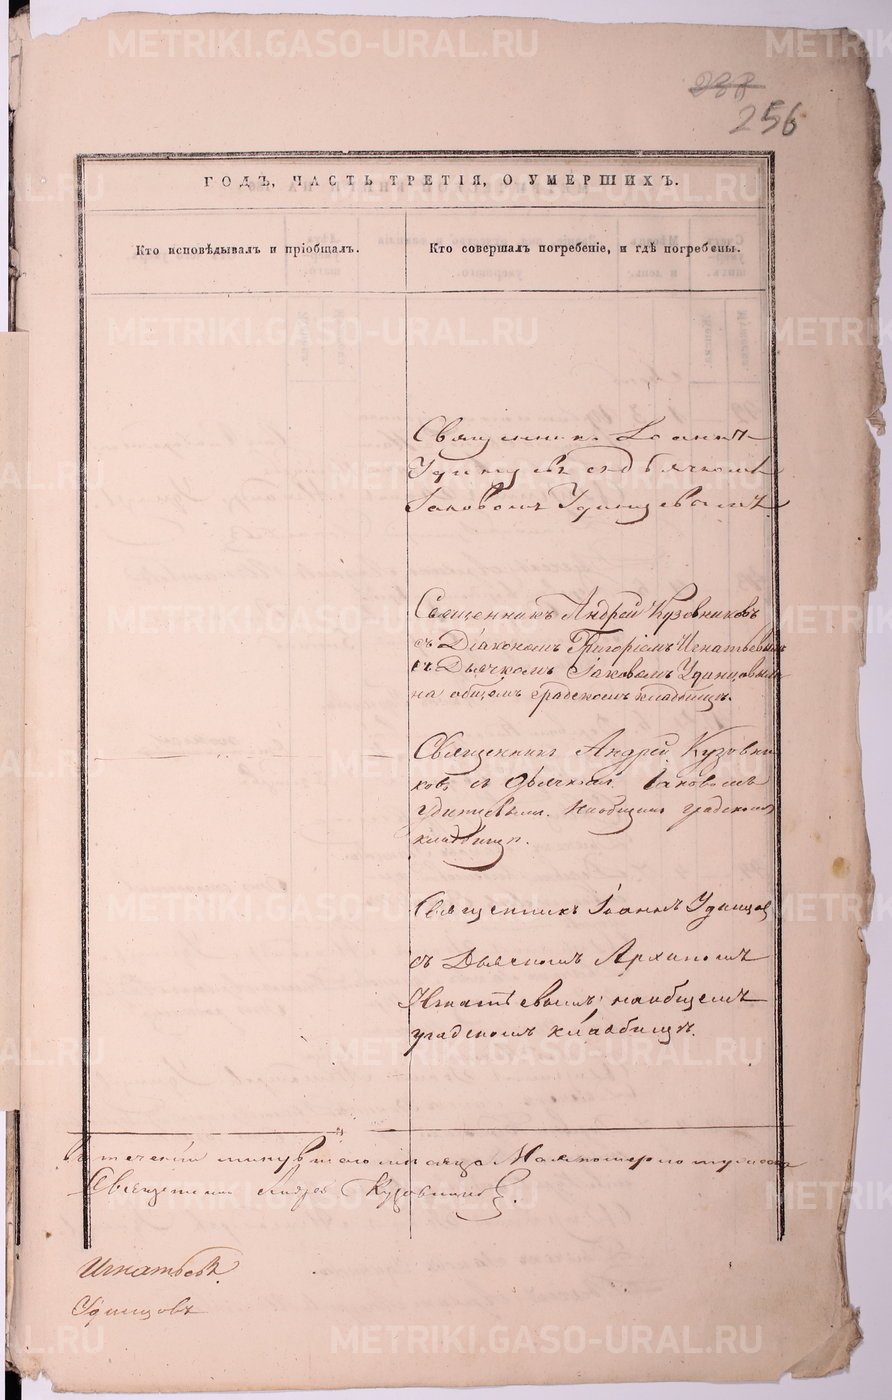 METRIKI.GASO-URAL.RU
256
ГОДЪ, ЧАСТЬ ТРЕТІЯ, О УМЕРШИХЪ.
Кто исповѣдывалъ и пріобщалъ.
Кто совершалъ погребеніе, и гдѣ погребены.
Священникъ Іоаннъ
Удинцевъ съ дьячкомъ
Іаковомъ Удинцевымъ
Священникъ Андрей Кузовниковъ
съ Діакономъ Григоріемъ Игнатьевымъ
съ Дьячкомъ Іаковомъ Удинцовымъ
на общемъ градскомъ кладбищѣ.
Священникъ Андрей Кузовни
ковъ съ дьячкомъ Іаковомъ
Удинцевымъ. На общемъ градскомъ
кладбищѣ.
Священникъ Іоаннъ Удинцов
съ Дьячкомъ Архипомъ
Игнатьевымъ; на общемъ
градскомъ кладбищѣ.
Въ теченіи минувшаго мѣсяца Мая
Священникъ Андрей Кузовниковъ.
Игнатьевъ.
Удинцовъ